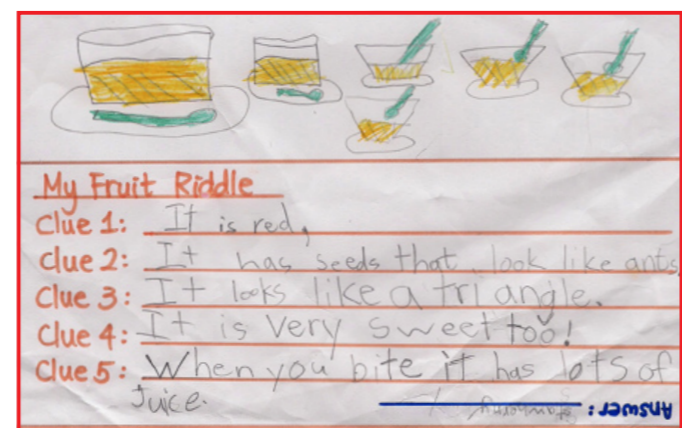 My Fruit Riddle
Clue 1: It is red,
Clue 2: It has seeds that look like ants.
Clue 3: It looks like a triangle.
Clue 4: It is very sweet too!
Clue 5: When you bite it has lots of
Juice.
Answer: